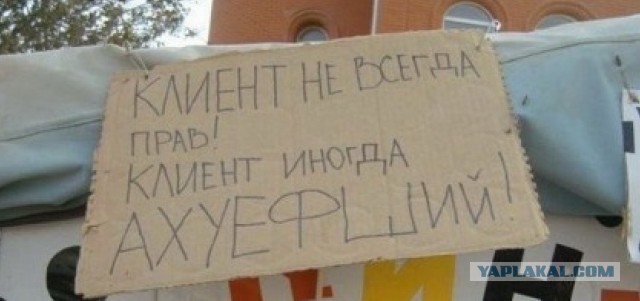 КЛИЕНТ НЕ ВСЕГДА
ПРАВ!
КЛИЕНТ ИНОГДА
АХУЕФШИЙ!
YAPLAKAL.COM